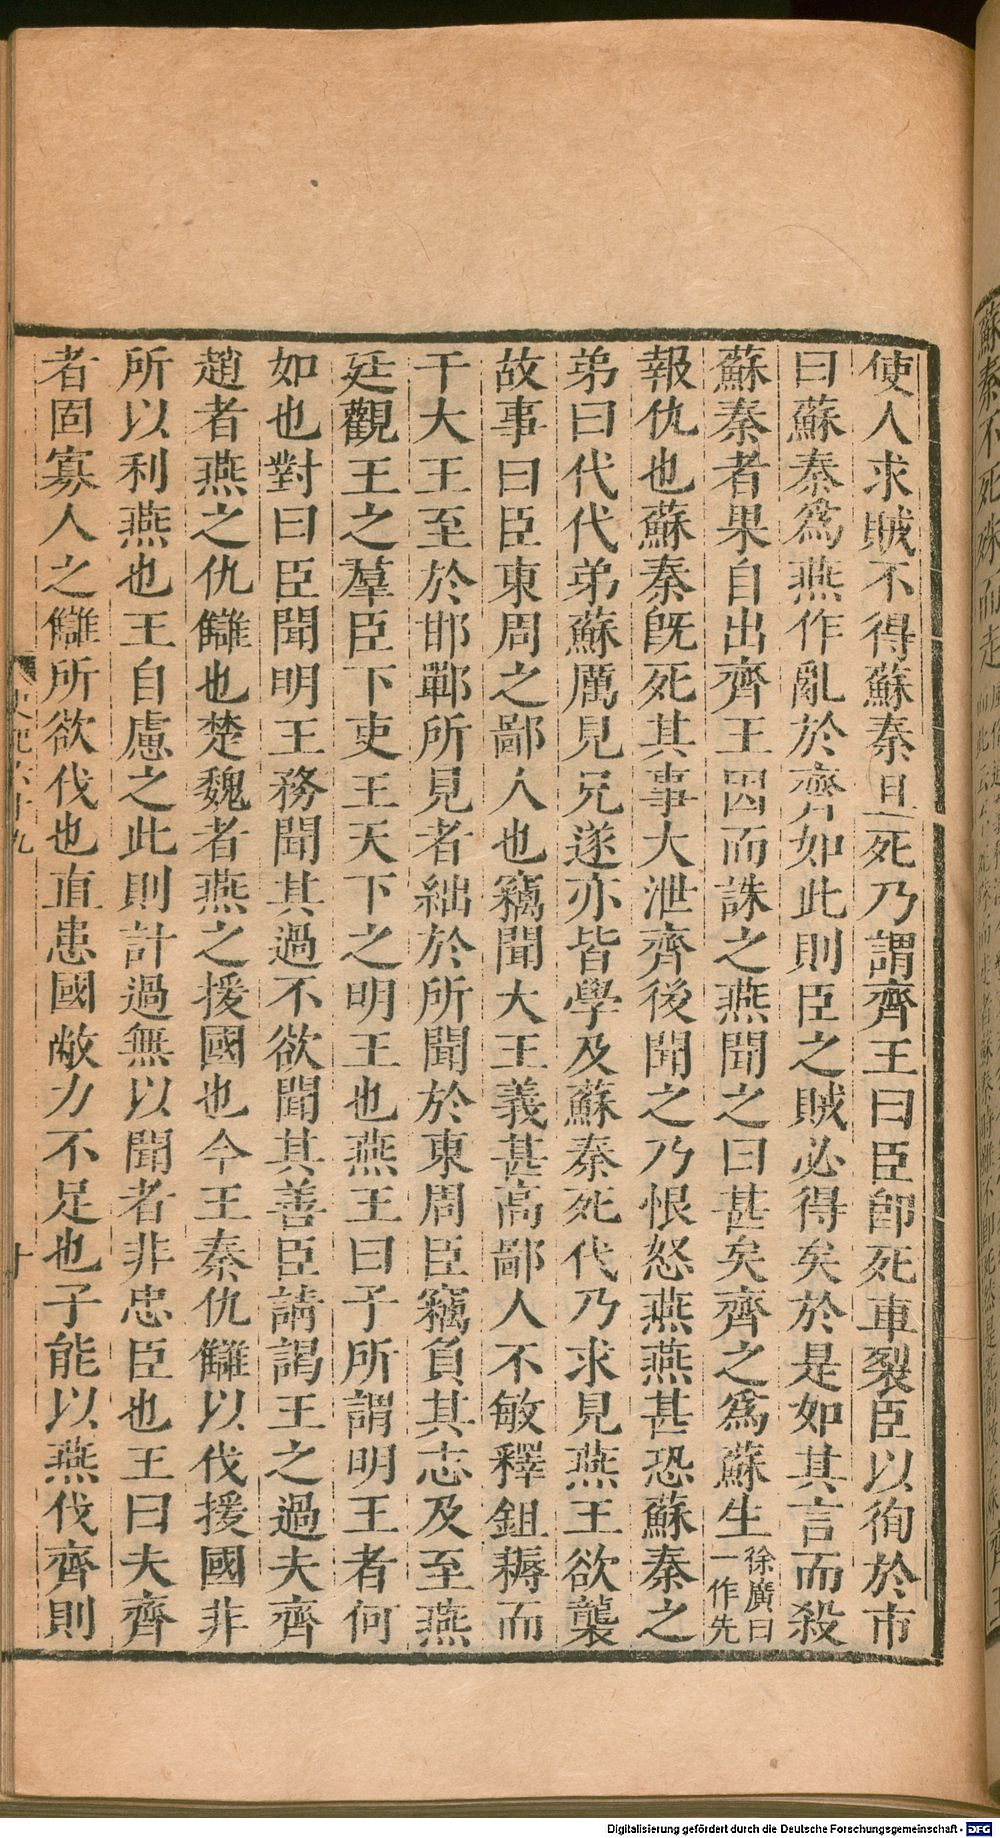 使人求賊不得蘇秦且死乃謂齊王曰臣卽死車裂臣以徇於市
曰蘇秦爲燕作亂於齊如此則臣之賊必得矣於是如其言而殺
蘇秦者果自出齊王因而誅之燕聞之曰甚矣齊之爲蘇生徐廣曰一作先
報仇也蘇秦旣死其事大泄齊後聞之乃恨怒燕燕甚恐蘇秦之
弟曰代代弟蘇厲見兄遂亦皆學及蘇秦死代乃求見燕王欲襲
故事曰臣東周之鄙人也竊聞大王義甚高鄙人不敏釋鉏耨而
干大王至於邯鄲所見者絀於所聞於東周臣竊負其志及至燕
廷觀王之羣臣下吏王天下之明王也燕王曰子所謂明王者何
如也對曰臣聞明王務聞其過不欲聞其善臣請謁王之過夫齊
趙者燕之仇讎也楚魏者燕之援國也今王奉仇讎以伐援國非
所以利燕也王自慮之此則計過無以聞者非忠臣也王曰夫齊
者固寡人之讎所欲伐也直患國敝力不足也子能以燕伐齊則
十
蘇秦不死殊而走
Digitalisierung gefördert durch die Deutsche Forschungsgemeinschaft - DFG